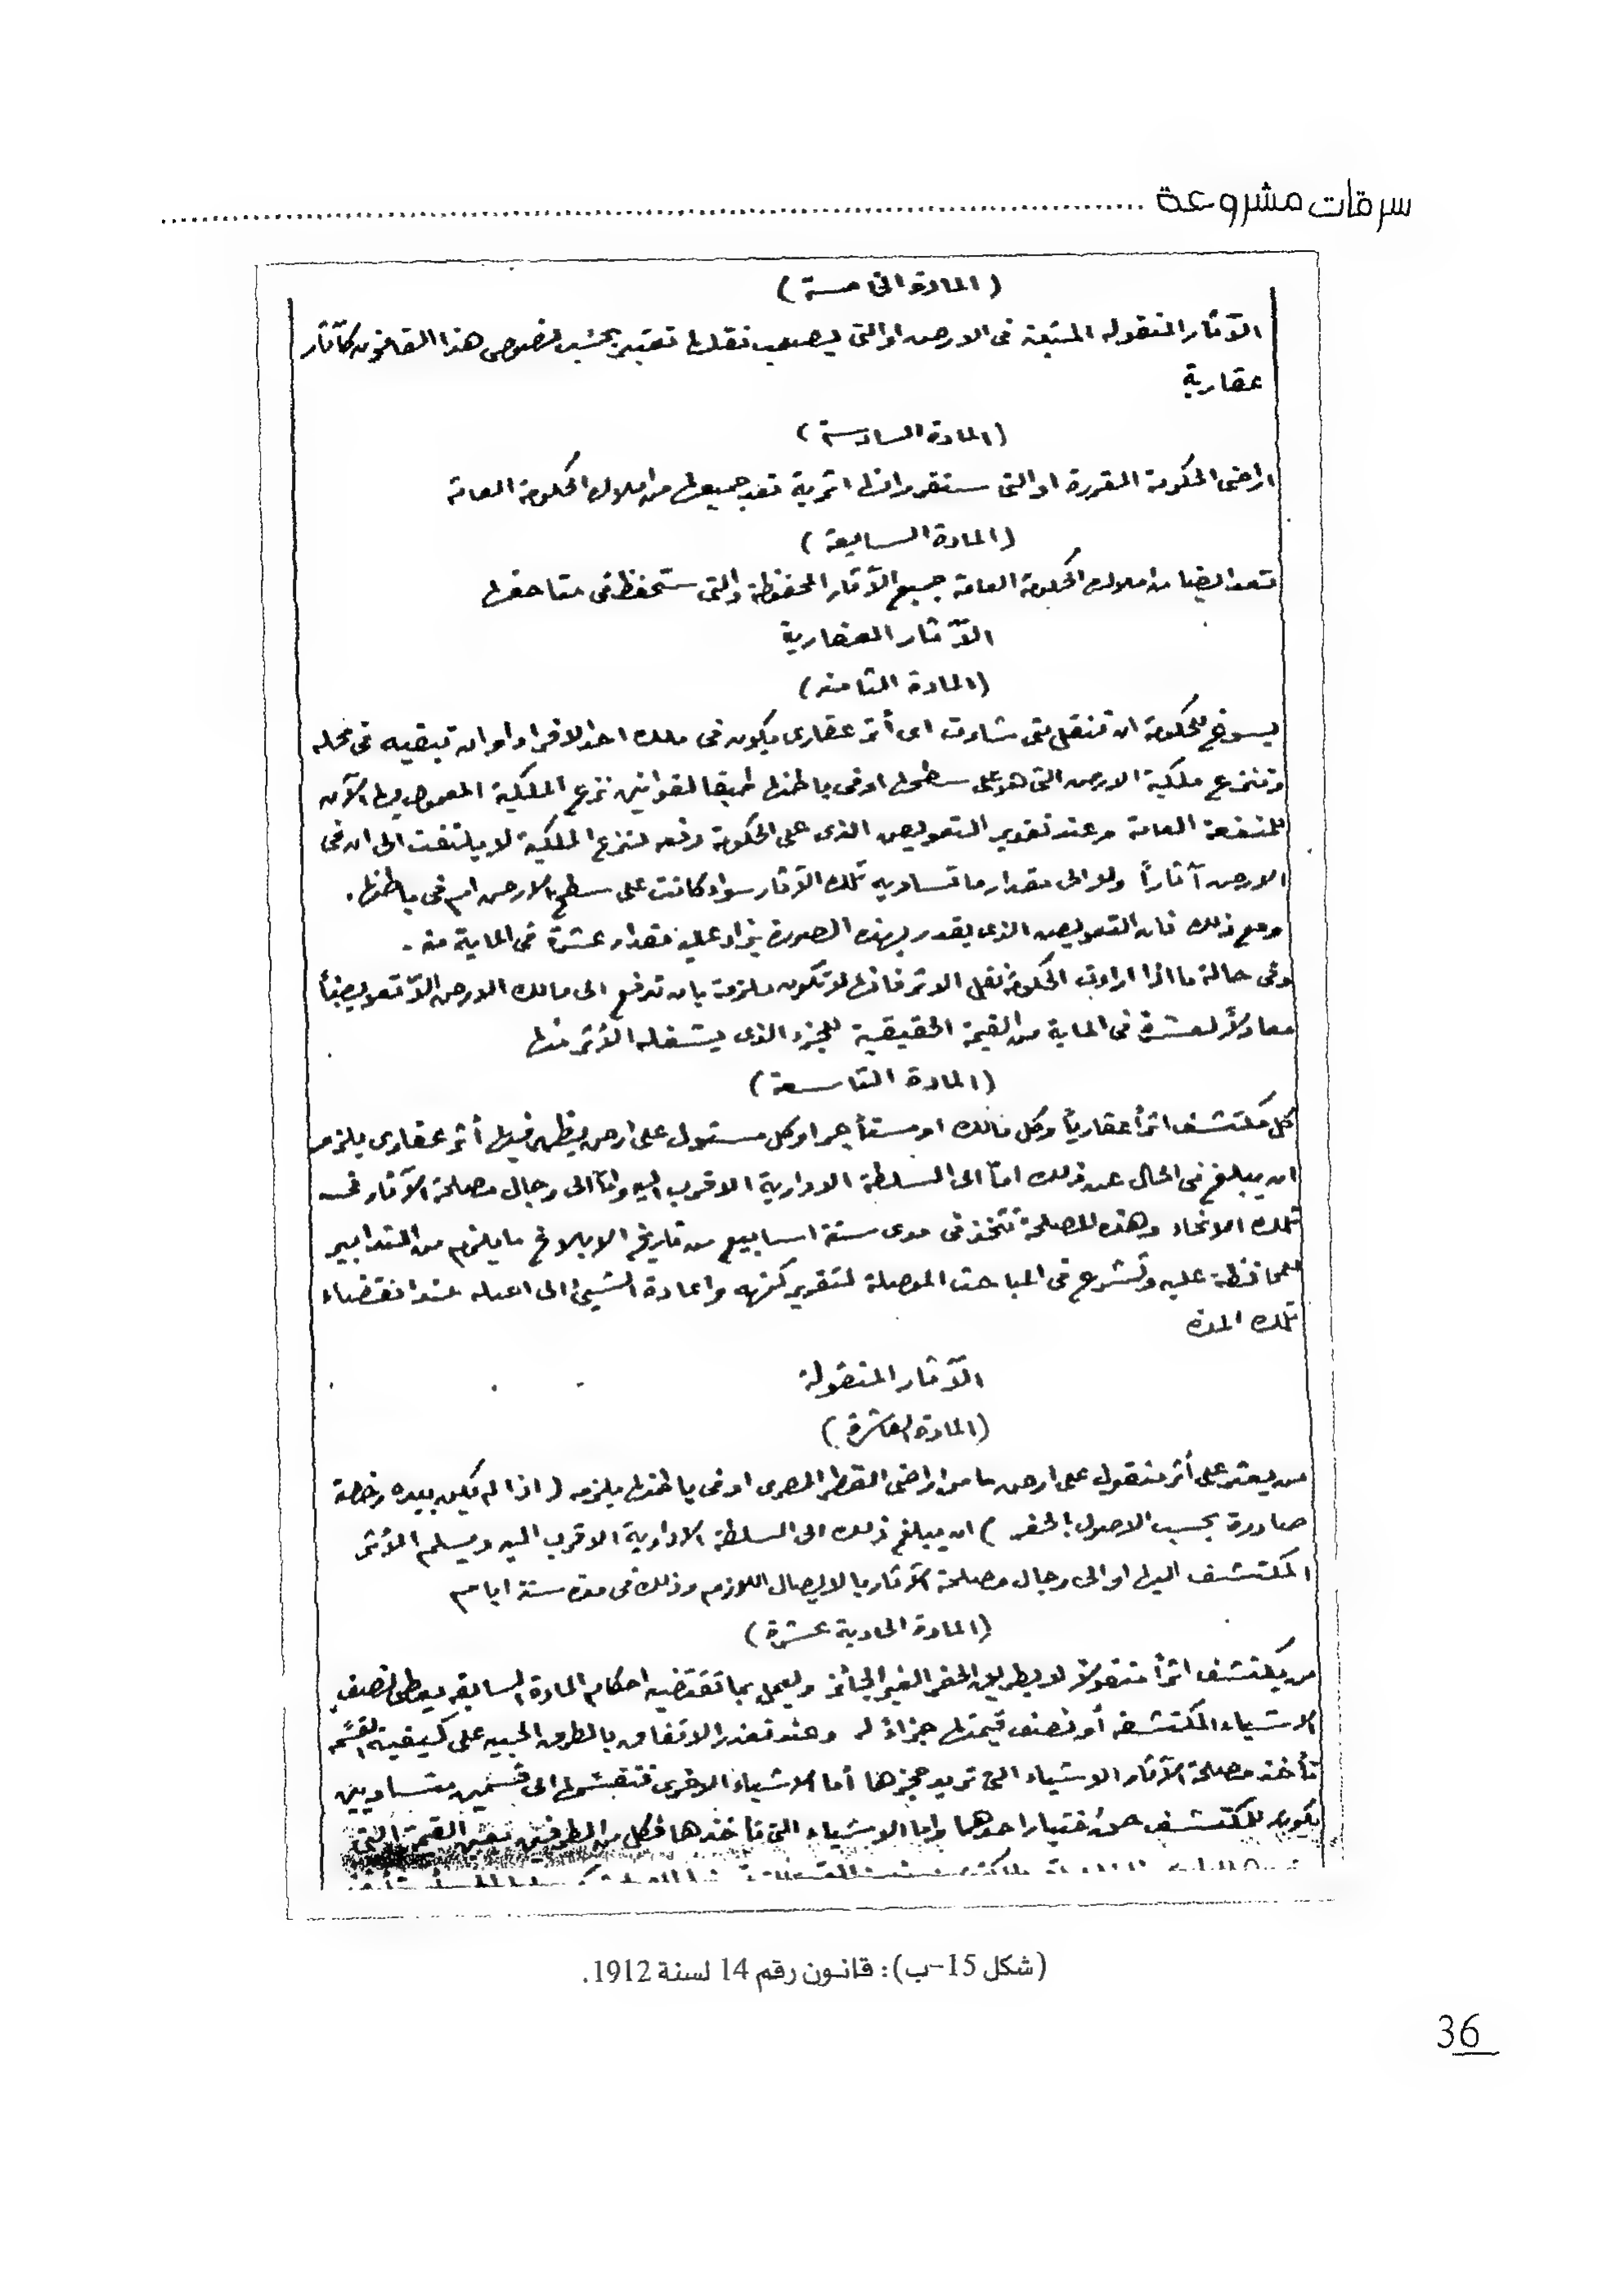 سرقات مشروعة
(المادة الخامسة)
الآثار المنقوله المثبتة فى الارض او التى يصعب نقلها تعتبر بحسب نصوص هذا القانون كآثار
عقارية
(المادة السادسة)
اراضى الحكومة المقررة او التى ستقرر انها اثرية تعد جميعها من املاك الحكومة العامة
(المادة السابعة)
تعد ايضا من املاك الحكومة العامة جميع الآثار المحفوظة والتى ستحفظ فى متاحفها
الآثار العقارية
(المادة الثامنه)
يسوغ للحكومة ان تنقل متى شاءت اى أثر عقارى يكون فى ملك احد الافراد او ان تبقيه فى محله
وتنزع ملكية الارض التى هو على سطحها او فى باطنها طبقا لقوانين نزع الملكية المعمول بها الآن
للمنفعة العامة وعند تقدير التعويض الذى على الحكومة دفعه لنزع الملكية لا يلتفت الى ان فى
الارض آثاراً ولا الى مقدار ما تساويه تلك الآثار سواء كانت على سطح الارض ام فى باطنها .
ومع ذلك فان التعويض الذى يقدر بهذه الصورة يزاد عليه مقدار عشرة فى الماية منه -
وفى حالة ما اذا ارادت الحكومة نقل الاثر فانها لا تكون ملزمة بان تدفع الى مالك الارض الا تعويضاً
معادلاً لعشرة فى الماية من القيمة الحقيقية للجزء الذى يشغله الأثر منها
(المادة التاسعة)
كل مكتشف اثراً عقارياً وكل مالك او مستأجر او كل مستول على ارض يظهر فيها أثر عقارى يلزمه
ان يبلغ فى الحال عن ذلك امّا الى السلطة الادارية الاقرب اليه وامّا الى رجال مصلحة الآثار فى
تلك الانحاء وهذه المصلحة تتخذ فى مدى ستة اسابيع من تاريخ الابلاغ ما يلزم من التدابير
للمحافظة عليه وتشرع فى المباحث الموصلة لتقرير كنهه واعادة الشيئ الى اصله عند انقضاء
تلك المدة
الآثار المنقولة
(المادة العاشرة)
من يعثر على أثر منقول على ارض ما من اراضى القطر المصرى او فى باطنها يلزمه ( اذا لم يكن بيده رخصة
صادرة بحسب الاصول بالحفر ) ان يبلغ ذلك الى السلطة الادارية الاقرب اليه ويسلم الأثر
المكتشف اليها او الى رجال مصلحة الآثار بالايصال اللازم وذلك فى مدة ستة ايام
(المادة الحادية عشرة)
من يكتشف اثراً منقولاً لا بطريق الحفر الغير الجائز ويعمل بما تقتضيه احكام المادة السابقه يعطى نصف
الاشياء المكتشفه أو نصف قيمتها جزاءً له وعند تعذر الاتفاق بالطرق الحبيه على كيفية القسمه
تأخذ مصلحة الآثار الاشياء التى تريد حجزها أما الاشياء الاخرى فتقسمها الى قسمين متساويين
يكون للمكتشف حق اختيار احدهما واما الاشياء التى تأخذها فكل من الطرفين يعين القيمة التى
(شكل 15-ب): قانون رقم 14 لسنة 1912.
36